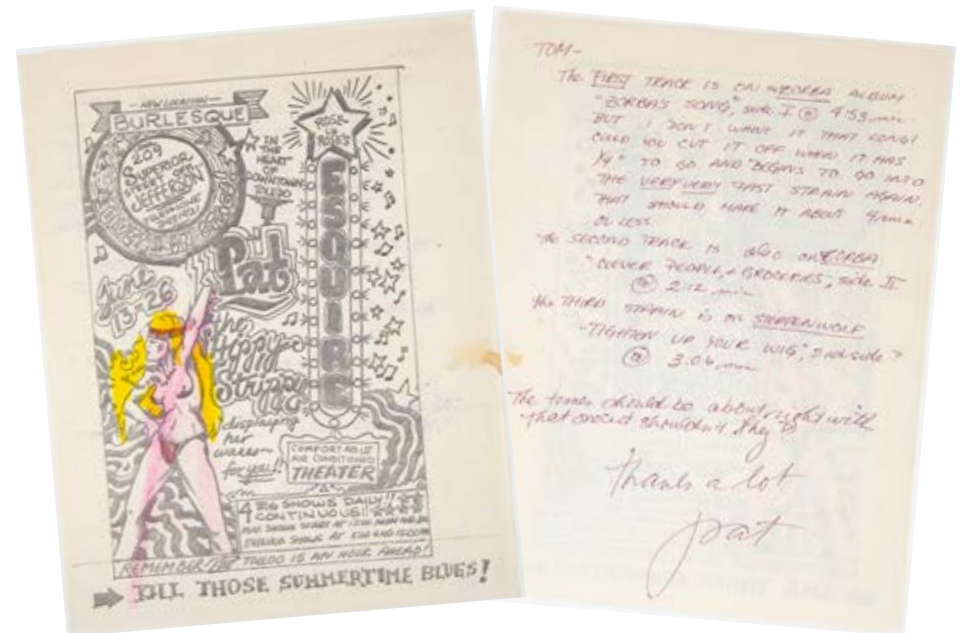 — NEW LOCATION —
BURLESQUE
209
SUPERIOR
STREET OFF
JEFFERSON
TELEPHONE
ROSE
LA
ROSE'S
ESQUIRE
IN
THE
HEART
OF
DOWNTOWN
TOLEDO
Pat
the
Hippy
Strippy
June
13-26
displaying
her
wares—
for you!!
COMFORTABLE
AIR CONDITIONED
THEATER
4 BIG SHOWS DAILY!!
CONTINUOUS!!
REMEMBER THE TOLEDO IS AN HOUR AHEAD!
KILL THOSE SUMMERTIME BLUES!
TOM-
The FIRST TRACK IS ON ZORBA ALBUM
"ZORBA'S SONG", side I @ 4:53 min
BUT I DON'T WANT IT THAT LONG!
COULD YOU CUT IT OFF WHEN IT HAS
1/4" TO GO AND BEGINS TO GO INTO
THE VERY VERY FAST STRAIN AGAIN.
THAT SHOULD MAKE IT ABOUT 4 min
OR LESS
the SECOND TRACK IS also on ZORBA
"CLEVER PEOPLE, + GROCERIES", side II
@ 2:12 min
the THIRD STRAIN is on STEPPENWOLF
"TIGHTEN UP YOUR WIG", 2nd side?
@ 3:06 min
The times should be about right with
that shouldn't they be
thanks a lot
pat